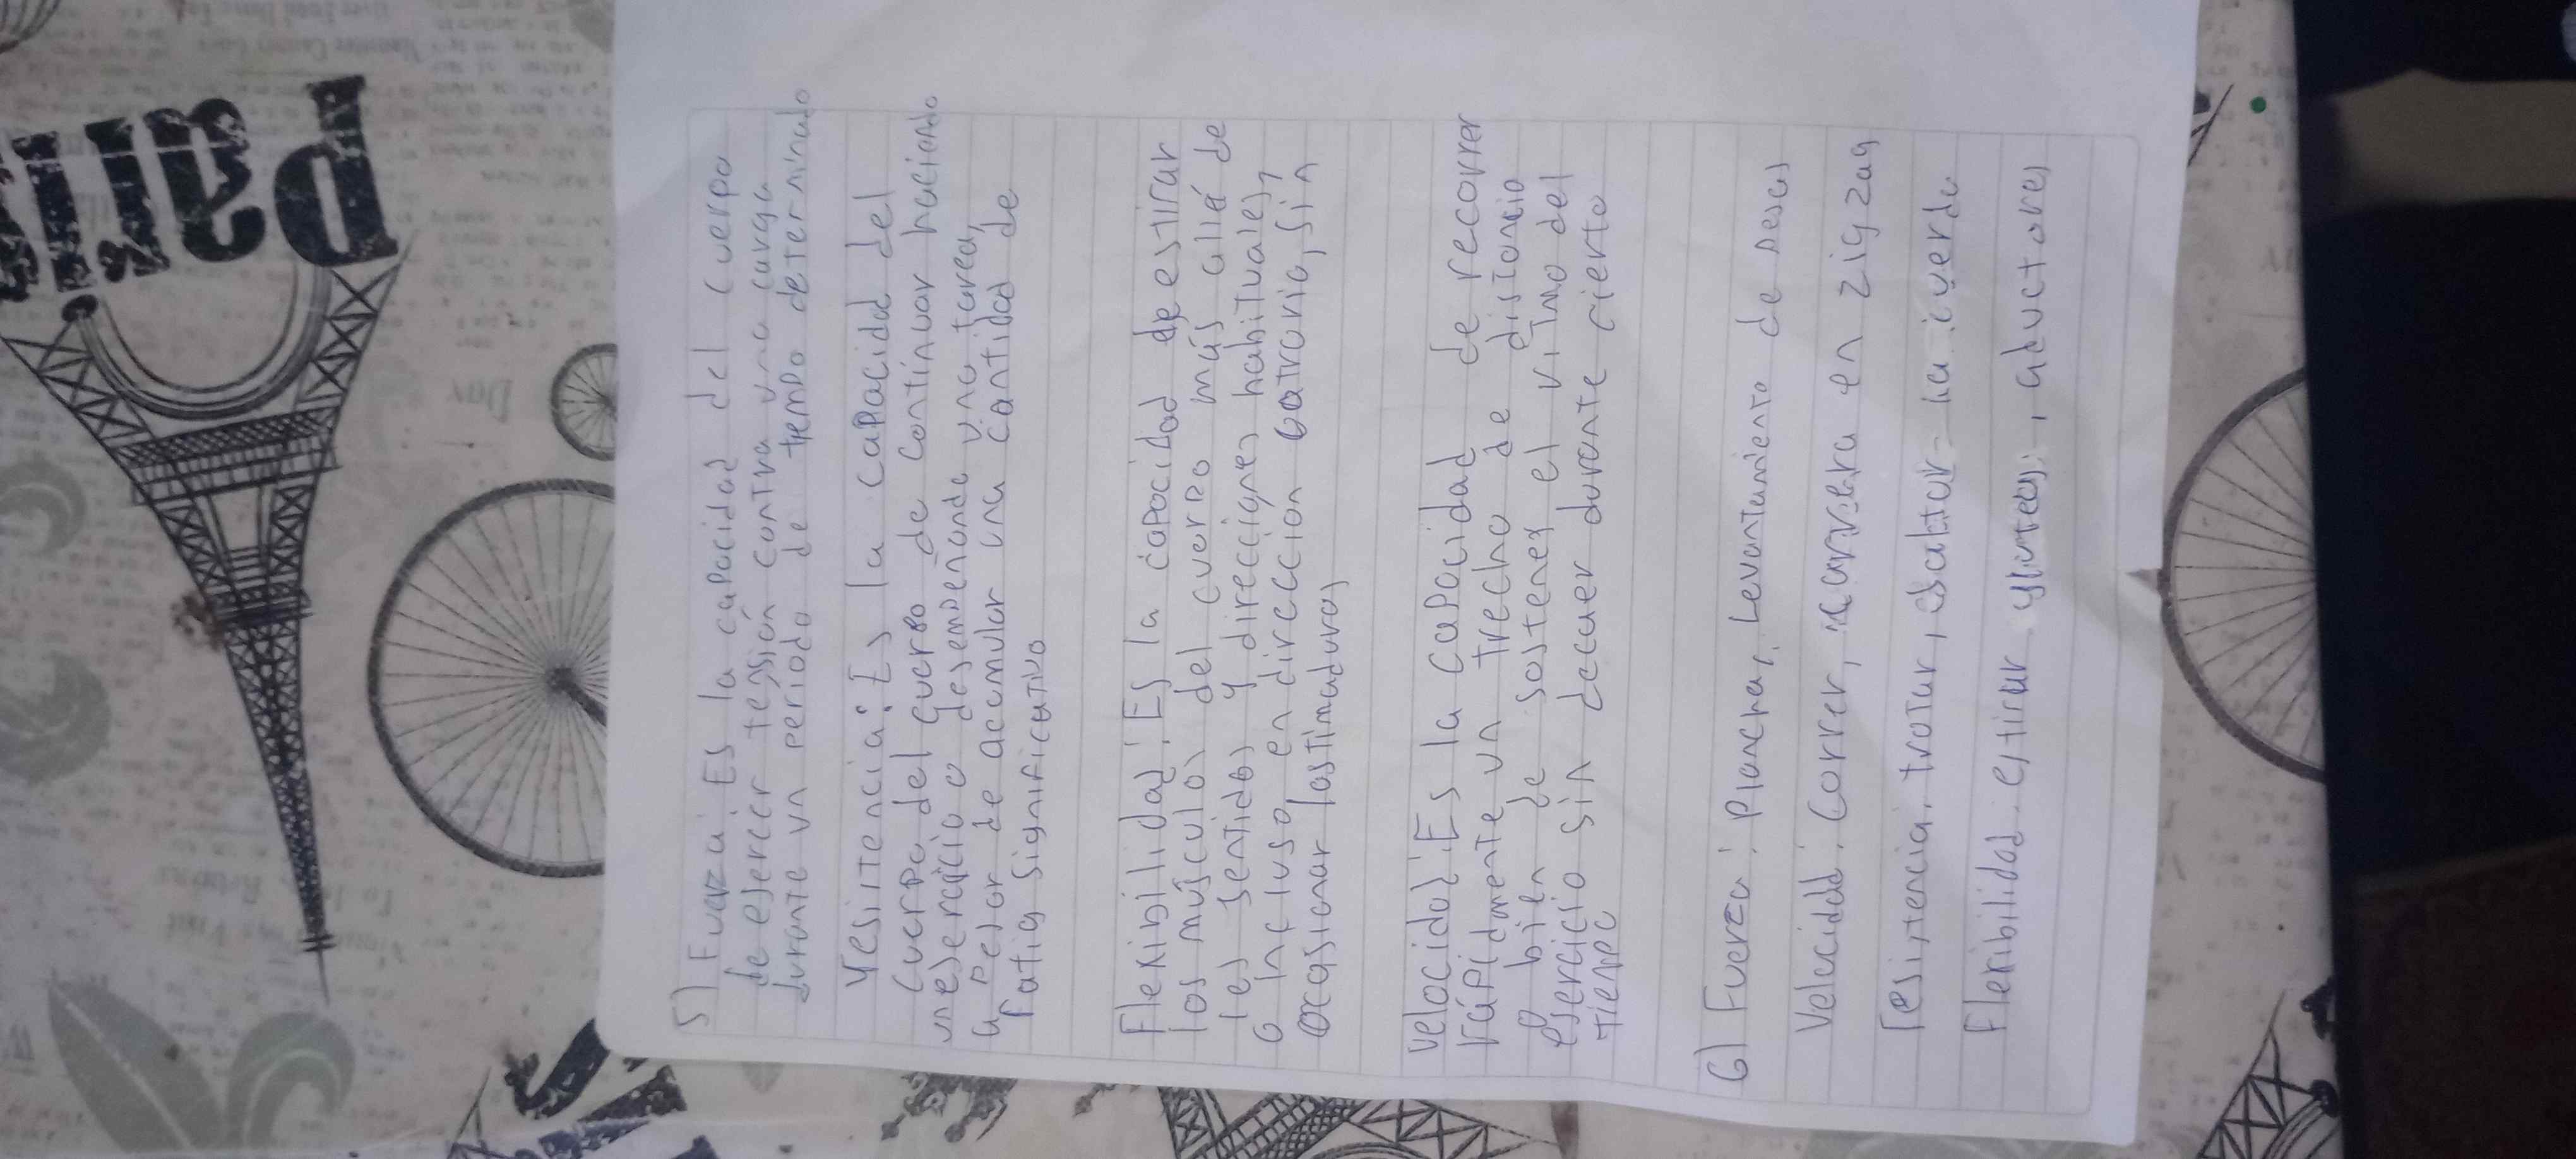 5) Fuerza: Es la capacidad del cuerpo
de ejercer tensión contra una carga
durante un periodo de tiempo determinado
resitencia: Es la capacidad del
cuerpo del querpo de continuar haciendo
un ejercicio o desempeñando una tarea,
a pesar de acomular una cantidad de
fatig significativo
Flexibilidad: Es la capacidad de estirar
los músculos del cuerpo más allá de
les sentidos y direcciones habituales,
o incluso, en direccion contraria, sin
ocasionar lastimaduras
velocidad: Es la capacidad de recorrer
rápidamente un trecho de distancia
o bien de sostener el ritmo del
esercicio sin decaer durante cierto
tiempo
6) Fuerza: Planchas, Levantamiento de pesas
Velocidad: Correr, carrera en zigzag
resistencia: trotar, saltar la cuerda
Flexibilidad: estirar gluteos, aductores
Paris